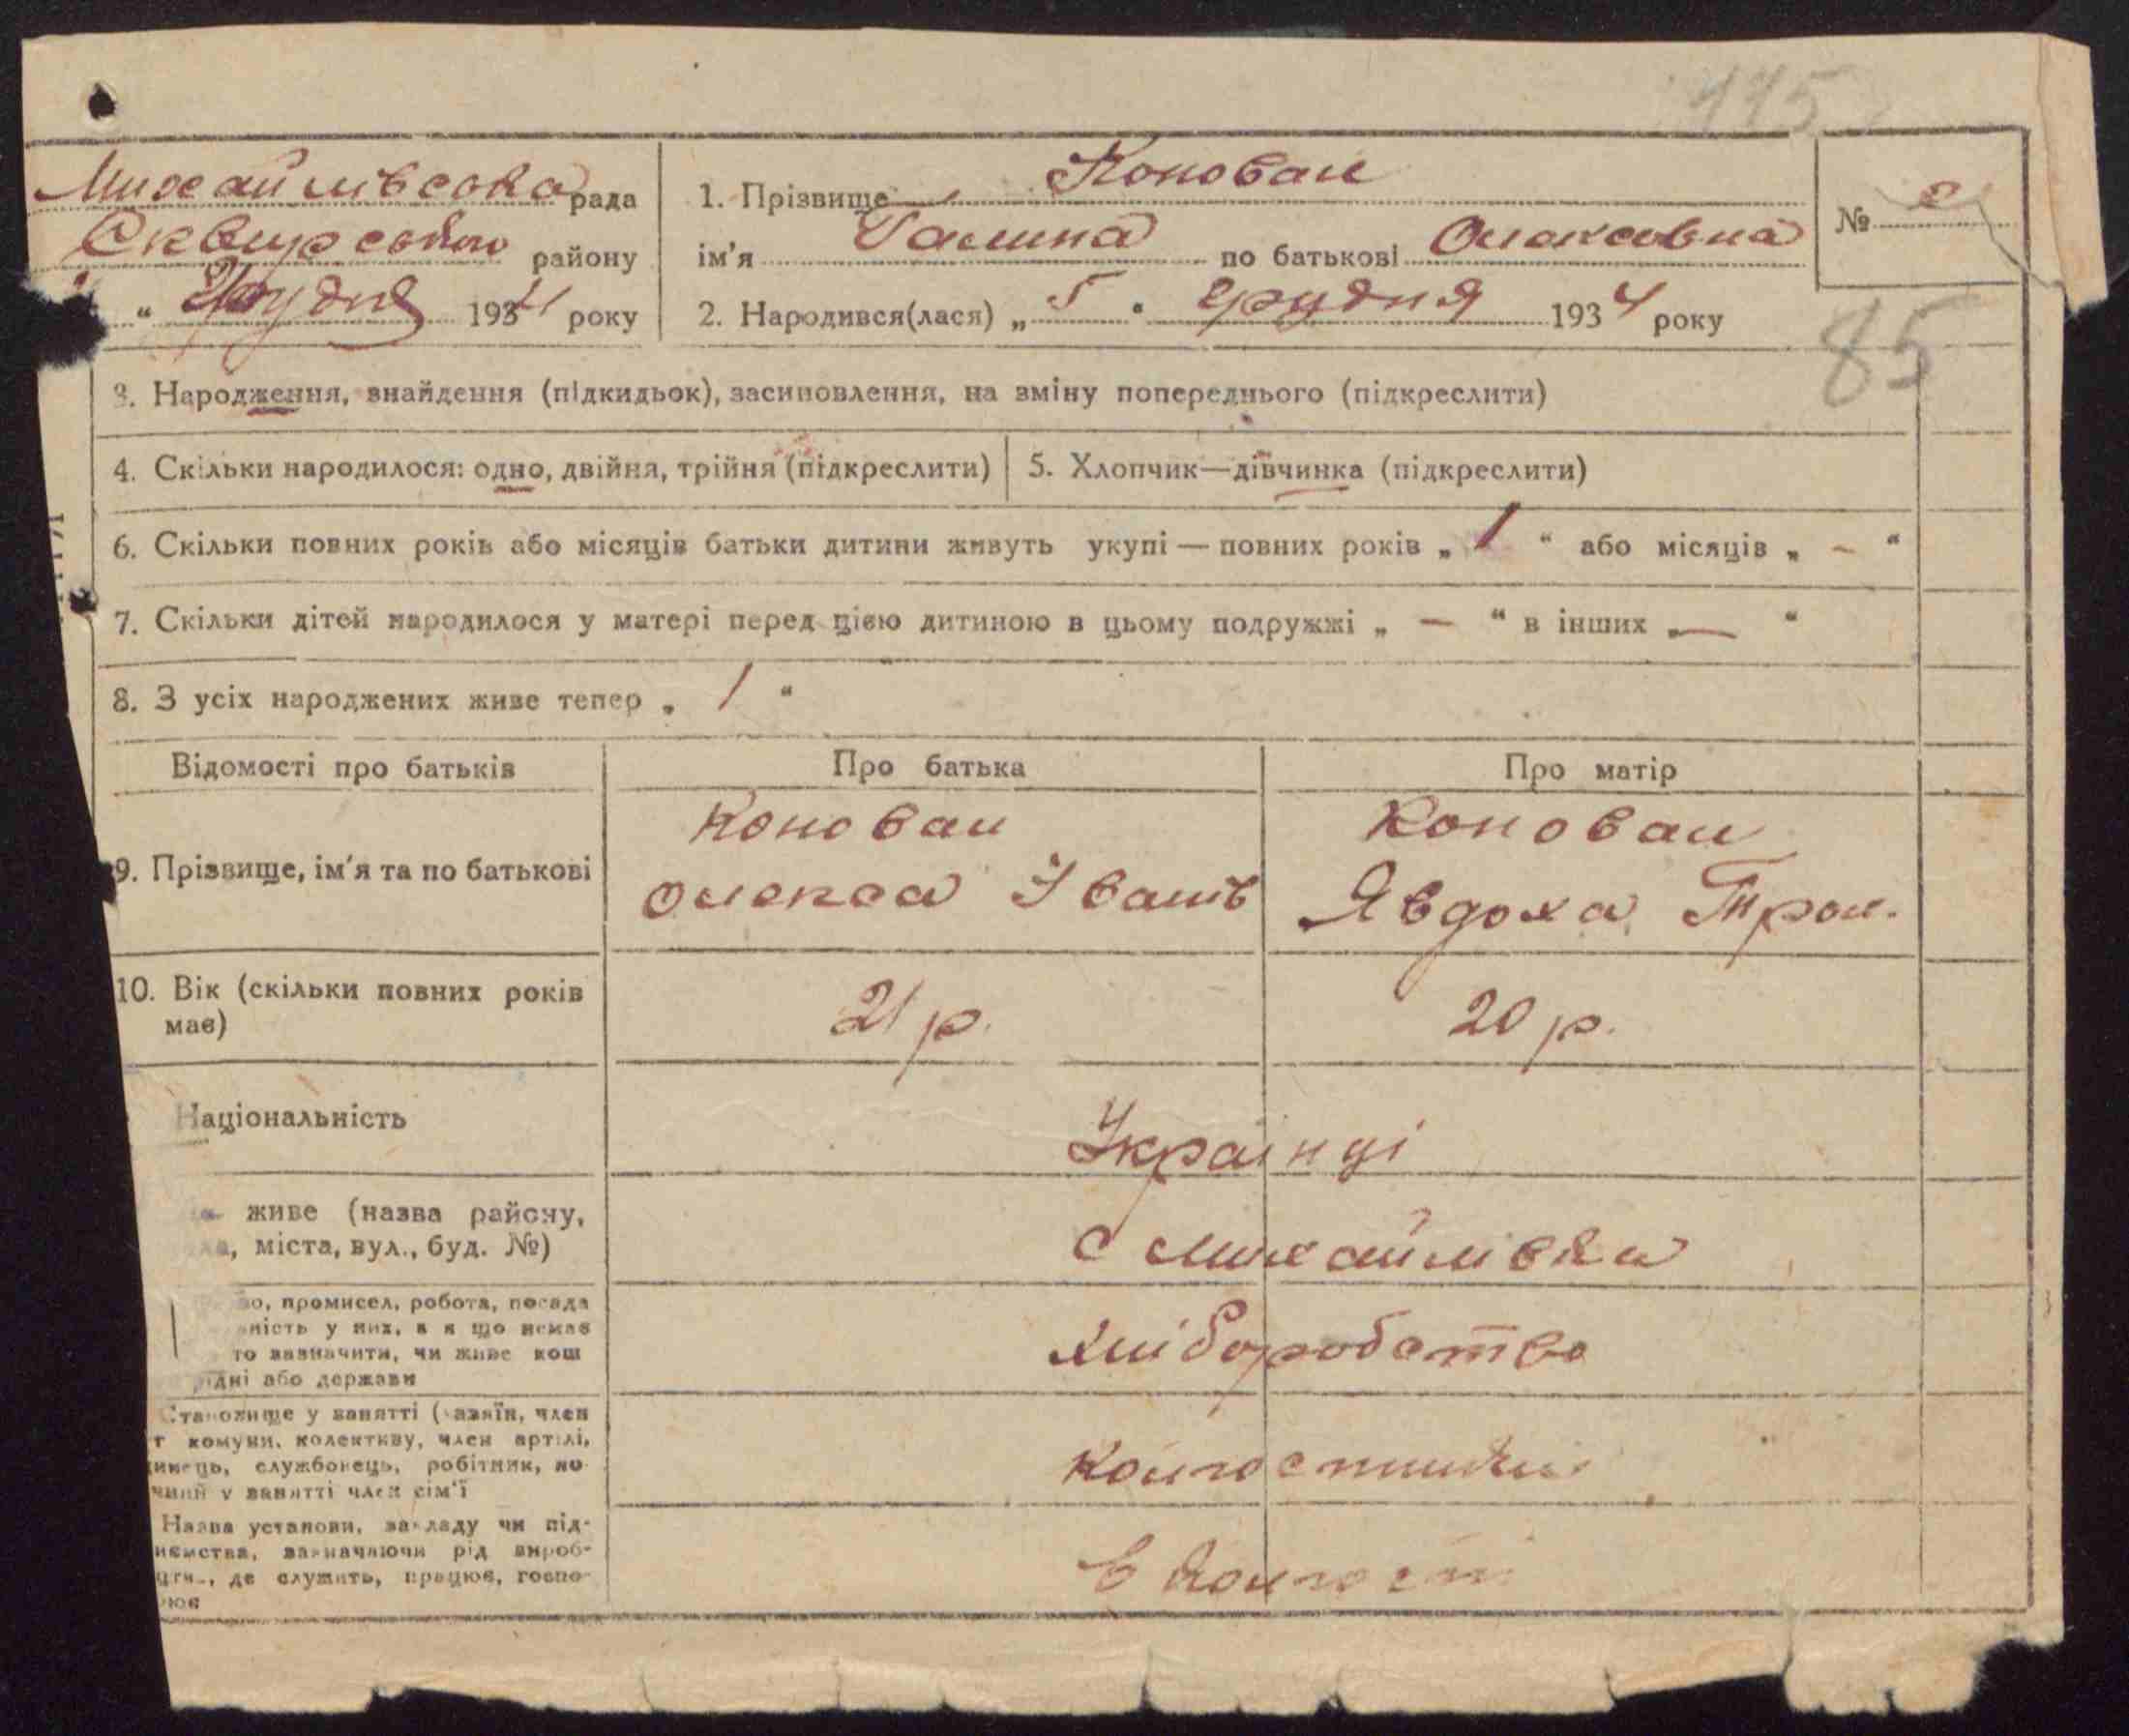 175
Михайлівська рада
Сквирського району
" Грудня 1934 року
1. Прізвище Коновал
ім'я Галина по батькові Олексовна
2. Народився(лася) „ 5 " грудня 1934 року
№ 2
85
3. Народження, знайдення (підкидьок), засиновлення, на зміну попереднього (підкреслити)
4. Скільки народилося: одно, двійня, трійня (підкреслити)
5. Хлопчик—дівчинка (підкреслити)
6. Скільки повних років або місяців батьки дитини живуть укупі — повних років „ 1 " або місяців „ - "
7. Скільки дітей народилося у матері перед цією дитиною в цьому подружжі „ — " в інших „ — "
8. З усіх народжених живе тепер „ 1 "
Відомості про батьків
Про батька
Про матір
9. Прізвище, ім'я та по батькові
Коновал
Олекса Іванів
Коновал
Явдоха Трох.
10. Вік (скільки повних років
має)
21 р.
20 р.
Національність
Українці
живе (назва району,
ла, міста, вул., буд. №)
с Михайлівка
во, промисел, робота, посада
ність у них, а я що немає
то зазначити, чи живе кош
рідні або держави
хліборобство
Становище у занятті (хазяїн, член
т комуни, колективу, член артілі,
динець, службовець, робітник, по-
чний у занятті член сім'ї
колгоспники
Назва установи, закладу чи під-
иємства, зазначаючи рід вироб-
цтв., де служить, працює, госпо-
рює
в колгоспі